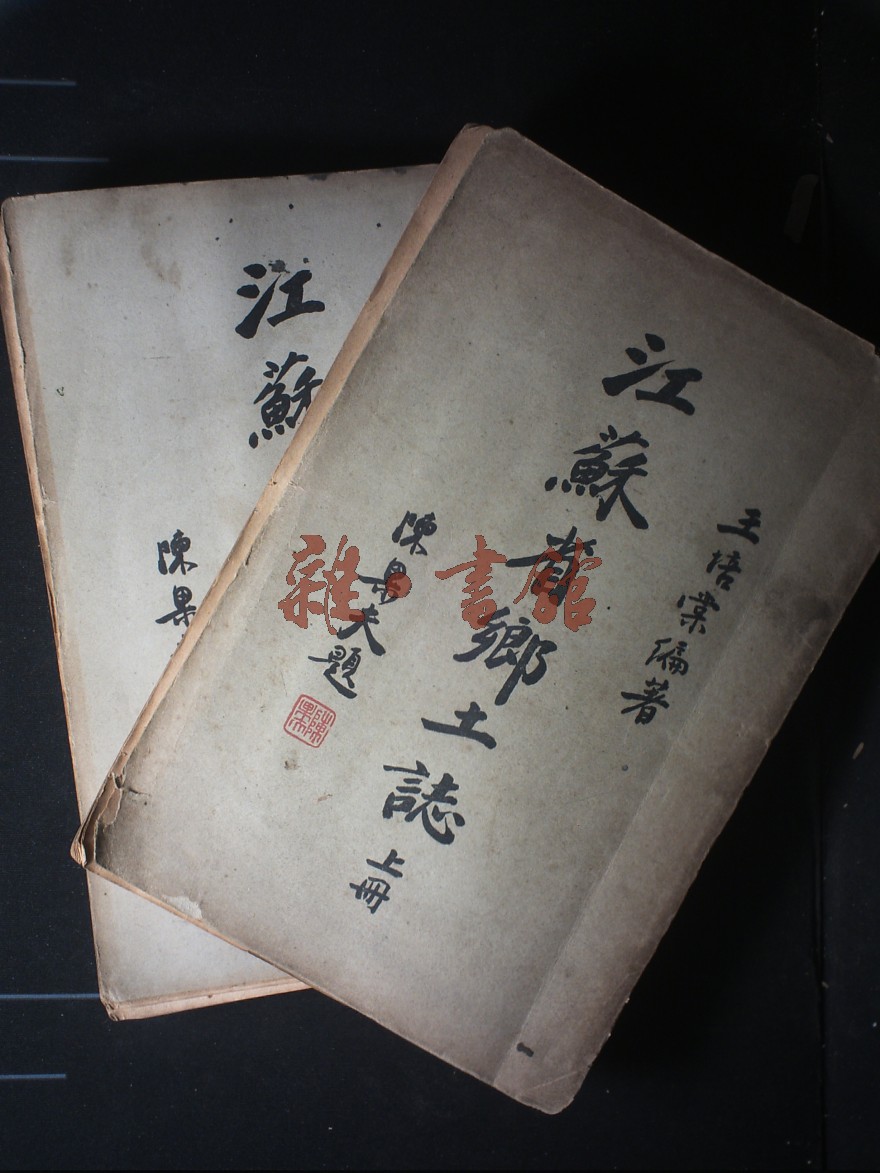 王培棠編著
江蘇省鄉土誌 上冊
陳果夫題
陳果夫
江蘇
陳果
雜·書館